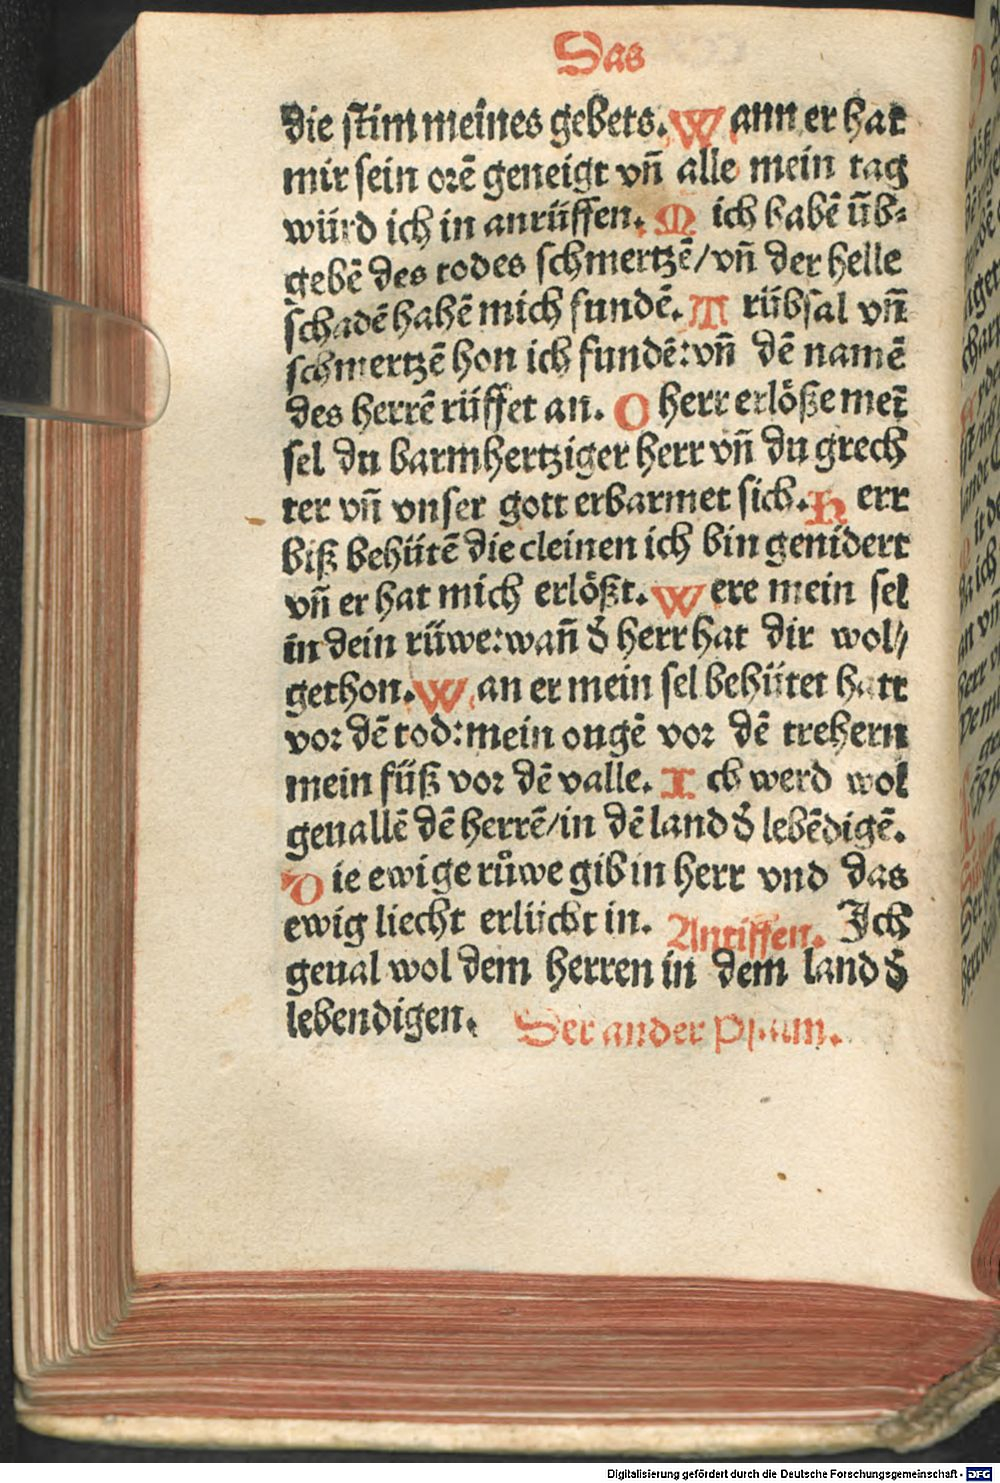 Das
die stim meines gebets. Wann er hat
mir sein orē geneigt vn̄ alle mein tag
würd ich in anrüffen. Mich habē ūb⸗
gebē des todes schmertzē/vn̄ der helle
schadē habē mich fundē. Trübsal vn̄
schmertzē hon ich fundē: vn̄ dē namē
des herrē rüffet an. O herr erlöße mei̅
sel du barmhertziger herr vn̄ du grech
ter vn̄ vnser gott erbarmet sich. Herr
biß behütē die cleinen ich bin genidert
vn̄ er hat mich erlößt. Were mein sel
in dein rüwe: wan̄ d̄ herr hat dir wol//
gethon. Wan er mein sel behütet hatt
vor dē tod: mein ougē vor dē trehern
mein füß vor dē valle. Ich werd wol
geuallē dē herrē/in dē land d̄ lebēdigē.
Die ewige růwe gib in herr vnd das
ewig liecht erlücht in. Antiffen. Ich
geual wol dem herren in dem land d̄
lebendigen. Der ander Psalm.
Digitalisierung gefördert durch die Deutsche Forschungsgemeinschaft - DFG